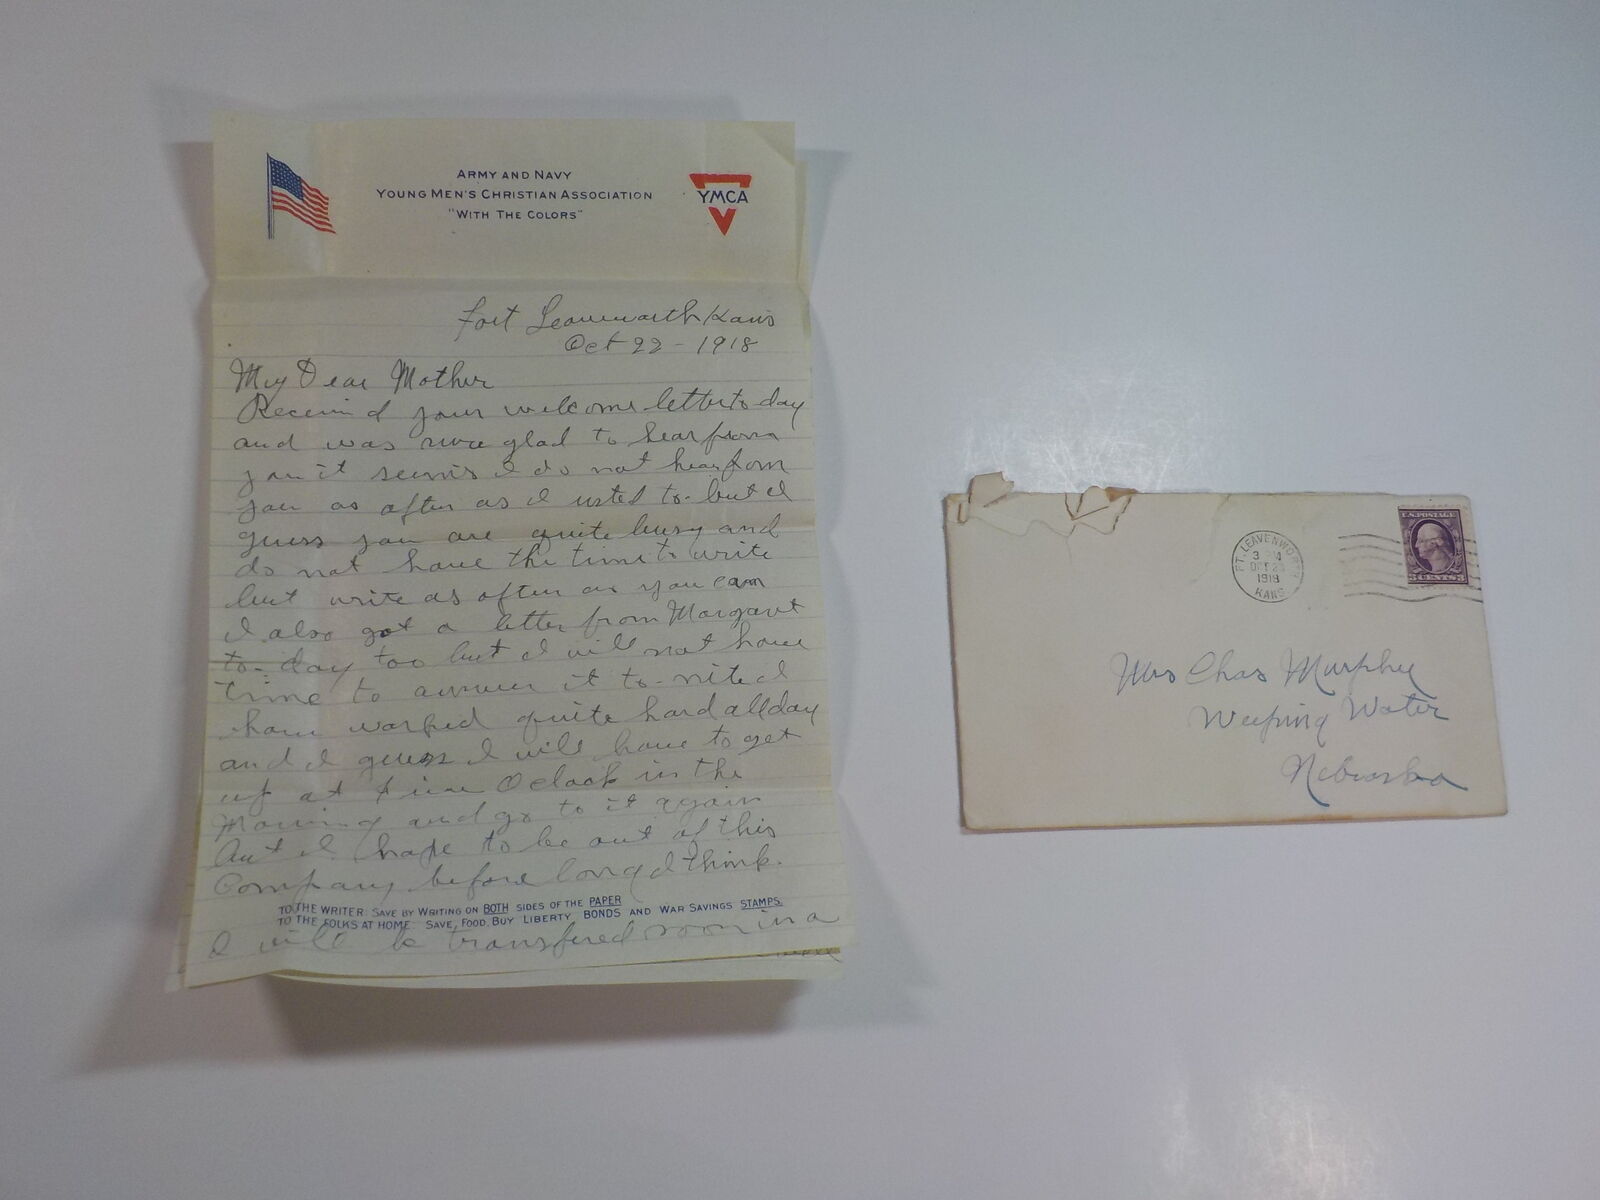 ARMY AND NAVY
YOUNG MEN'S CHRISTIAN ASSOCIATION
"WITH THE COLORS"
YMCA
Fort Leavenworth Kans
Oct 22 - 1918
My Dear Mother
Received your welcome letter to day
and was glad to hear from
you it seems I do not hear from
you as often as I used to - but I
guess you are quite busy and
do not have the time to write
but write as often as you can
I also got a letter from Margaret
to-day too but I will not have
time to answer it to-nite I
have worked quite hard all day
and I guess I will have to get
up at five Oclock in the
Morning and go to it again
But I hope to be out of this
Company before long I think.
TO THE WRITER: SAVE BY WRITING ON BOTH SIDES OF THE PAPER
TO THE FOLKS AT HOME: SAVE, FOOD, BUY LIBERTY BONDS AND WAR SAVINGS STAMPS.
I will be transfered soon in a
U.S. POSTAGE
3 CENTS 3
FT. LEAVENWORTH
3 PM
OCT 23
1918
KANS
Mrs Chas Murphy
Weeping Water
Nebraska